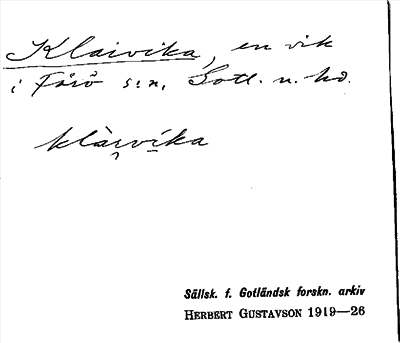 Klaivika, en vik
i Fårö s:n, Gotl. n. hd.
klài̯vi̱ka
Sällsk. f. Gotländsk forskn. arkiv
HERBERT GUSTAVSON 1919—26